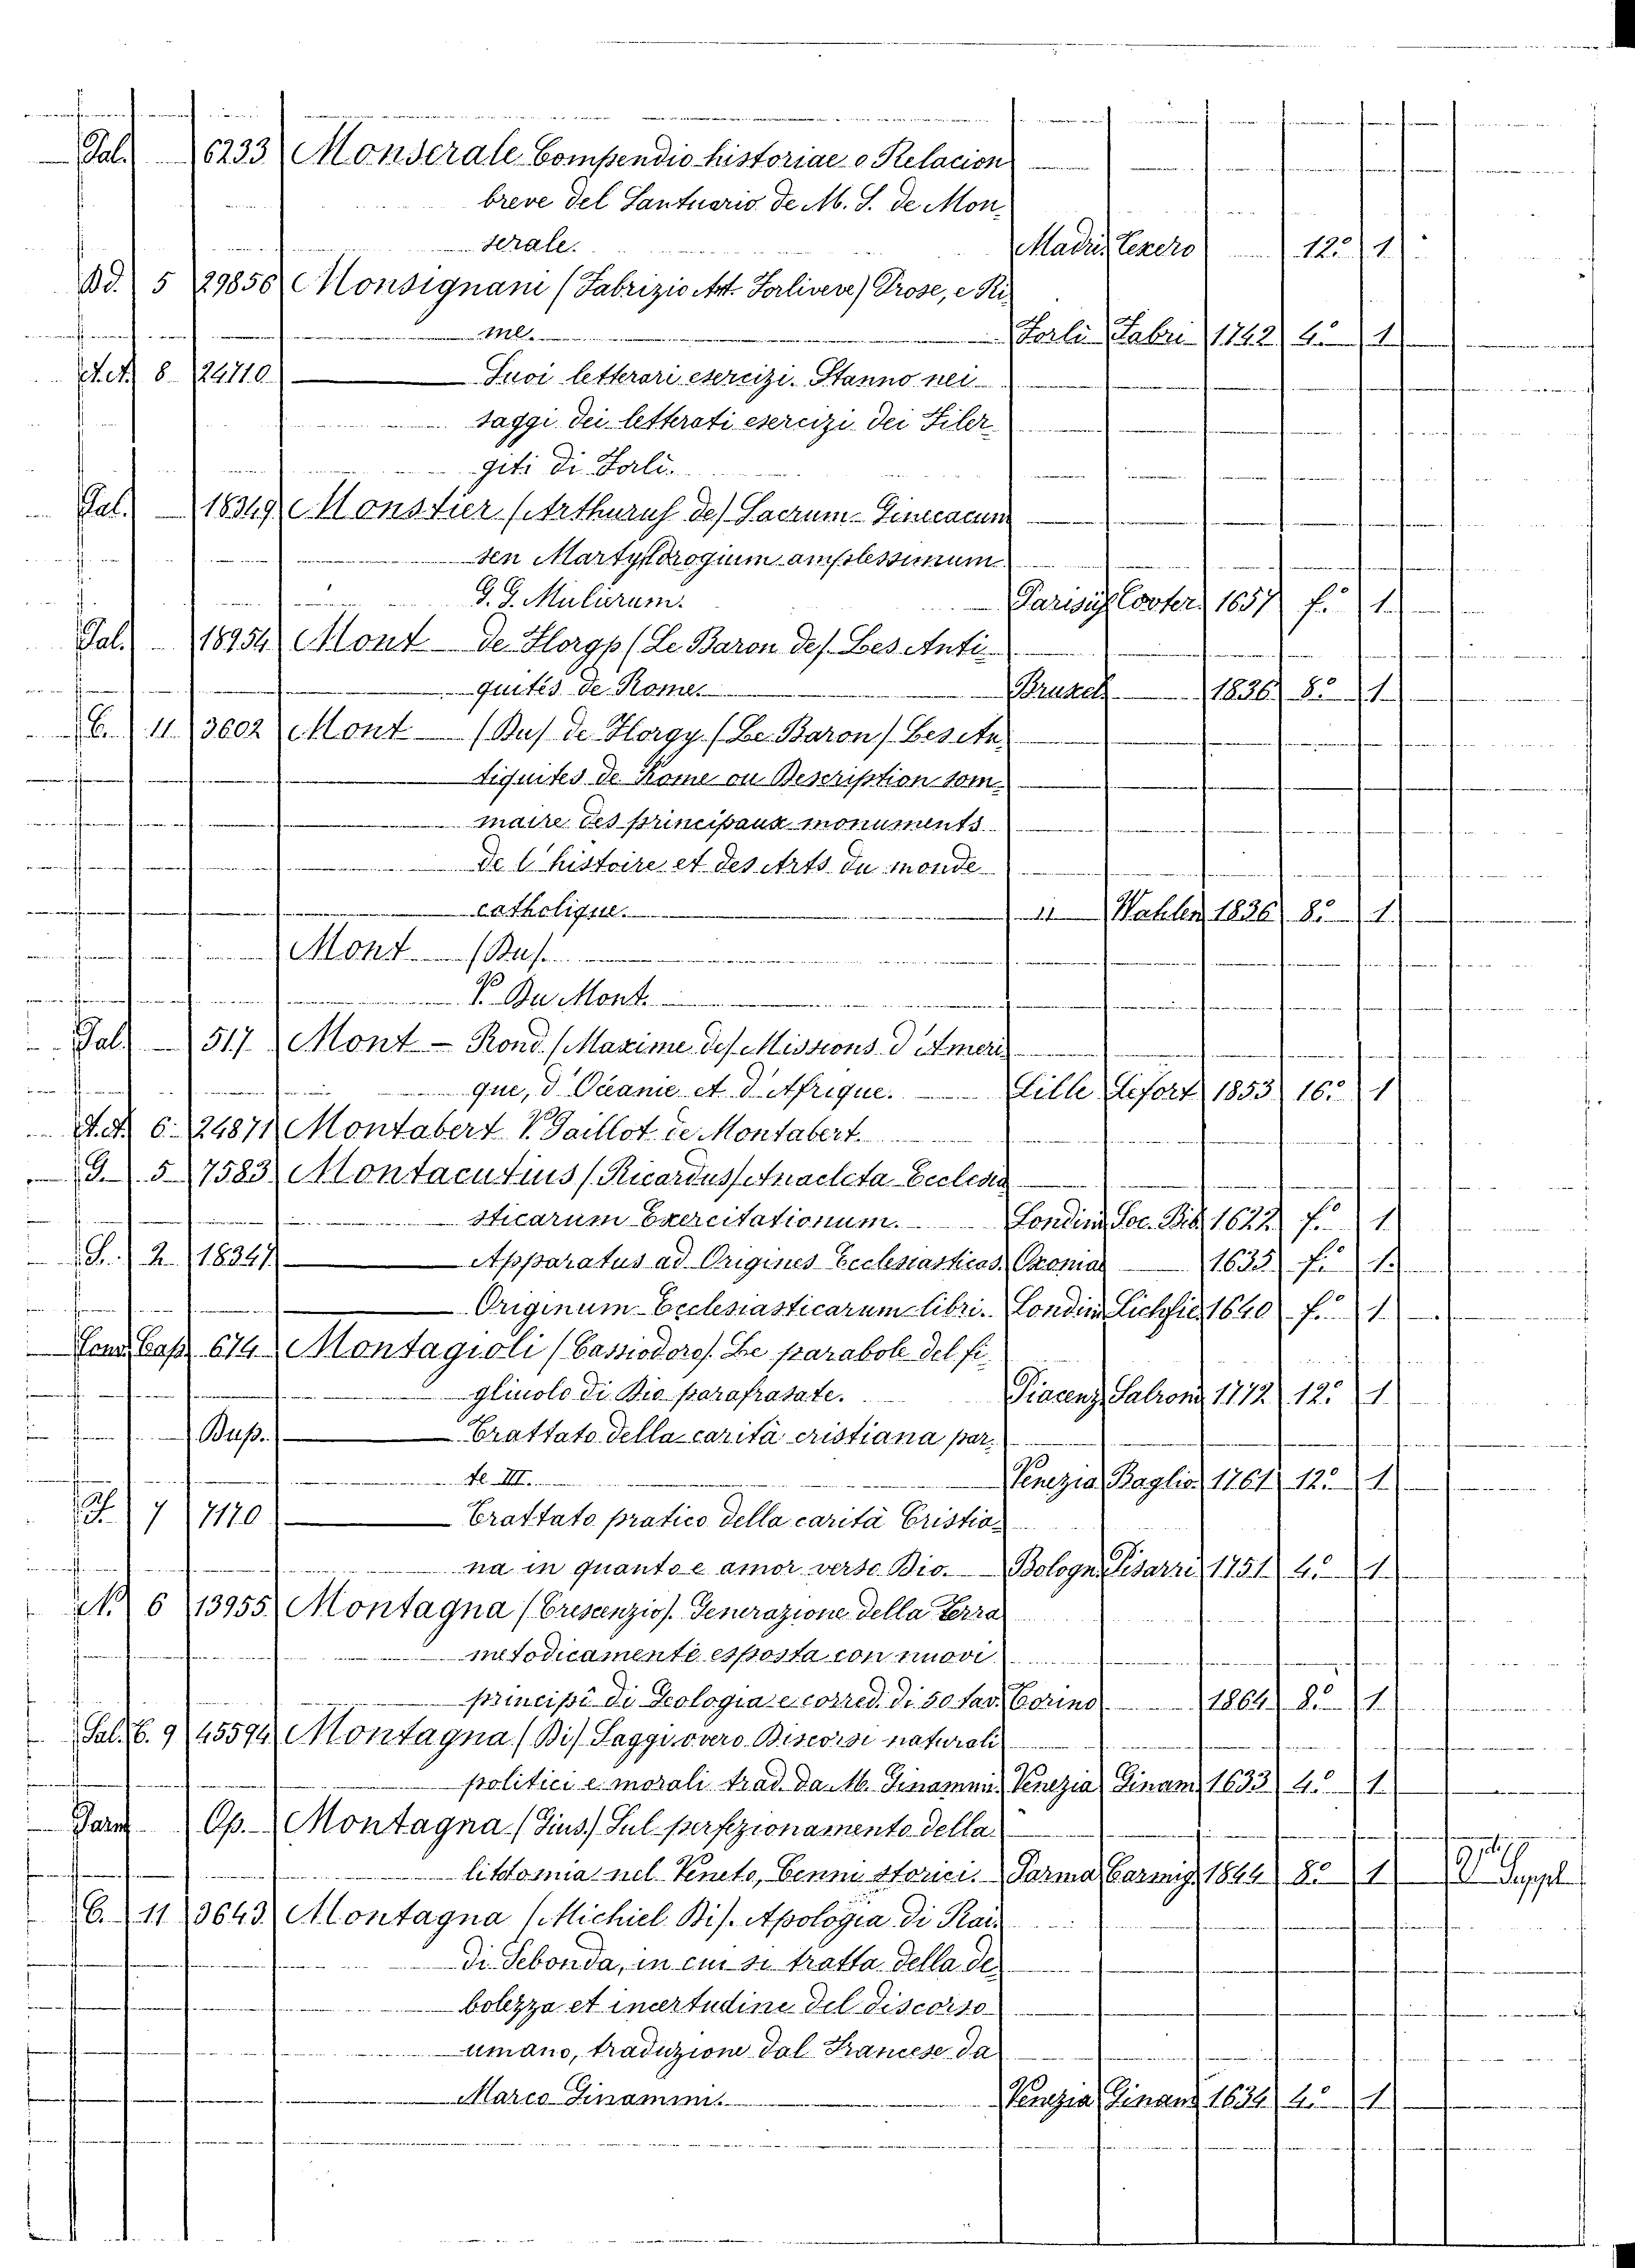 Pal. 6233 Monserale Compendio historiae o Relacion
breve del Santuario de M. S. de Mon-
serale. Madrid Texero 12.° 1
Dd. 5 29856 Monsignani (Fabrizio Ant. Forlivere) Prose, e Ri-
me. Forlì Fabri 1742 4.° 1
A.A. 8 24710 Suoi letterari esercizi. Stanno nei
saggi dei letterati esercizi dei Filer-
giti di Forlì.
Pal. 18349 Monstier (Arthurus de) Sacrum Ginecacum
sen Martyrologium amplessimum
G. G. Mulierum. Parisiis Cooter. 1657 f.° 1
Pal. 18954 Mont de Florgp (Le Baron de). Les Anti-
quités de Rome. Bruxel. 1836 8.° 1
C. 11 3602 Mont (Du) de Florgy (Le Baron) Les An-
tiquites de Rome ou Description som-
maire des principaux monuments
de l'histoire et des Arts du monde
catholique. 11 Wahlen 1836 8.° 1
Mont (Du).
V. Du Mont.
Pal. 517 Mont - Rond (Maxime de) Missions d'Ameri-
que, d'Oceanie et d'Afrique. Lille Lefort 1853 16.° 1
A.A. 6 24871 Montabert V. Paillot de Montabert.
G. 5 7583 Montacutius (Ricardus) Anacleta Ecclesia-
sticarum Exercitationum. Londini Soc. Bib. 1622 f.° 1
S. 2 18347 Apparatus ad Origines Ecclesiasticas. Oxoniae 1635 f.° 1
Originum Ecclesiasticarum libri. Londini Lichfie. 1640 f.° 1
Cas. 674 Montagioli (Cassiodoro). Le parabole del fi-
gliuolo di Dio parafrasate. Piacenz. Salvoni 1772 12.° 1
Dup. Trattato della carità cristiana par-
te III. Venezia Baglio. 1761 12.° 1
7 7170 Trattato pratico della carità Cristia-
na in quanto e amor verso Dio. Bologn. Pisarri 1751 4.° 1
N. 6 13955 Montagna (Crescenzio). Generazione della Terra
metodicamente esposta con nuovi
principî di Geologia e corred. di 50 tav. Torino 1864 8.° 1
Sal. C. 9 45594 Montagna (Di) Saggi overo Discorsi naturali
politici e morali trad. da M. Ginammi. Venezia Ginam. 1633 4.° 1
Parm Op. Montagna (Gius.) Sul perfezionamento della
litotomia nel Veneto, Cenni storici. Parma Carmig. 1844 8.° 1 V. Suppl.
C. 11 3643 Montagna (Michiel Di). Apologia di Rai-
di Sebonda, in cui si tratta della de-
bolezza et incertudine del discorso
umano, traduzione dal Francese da
Marco Ginammi. Venezia Ginam. 1634 4.° 1